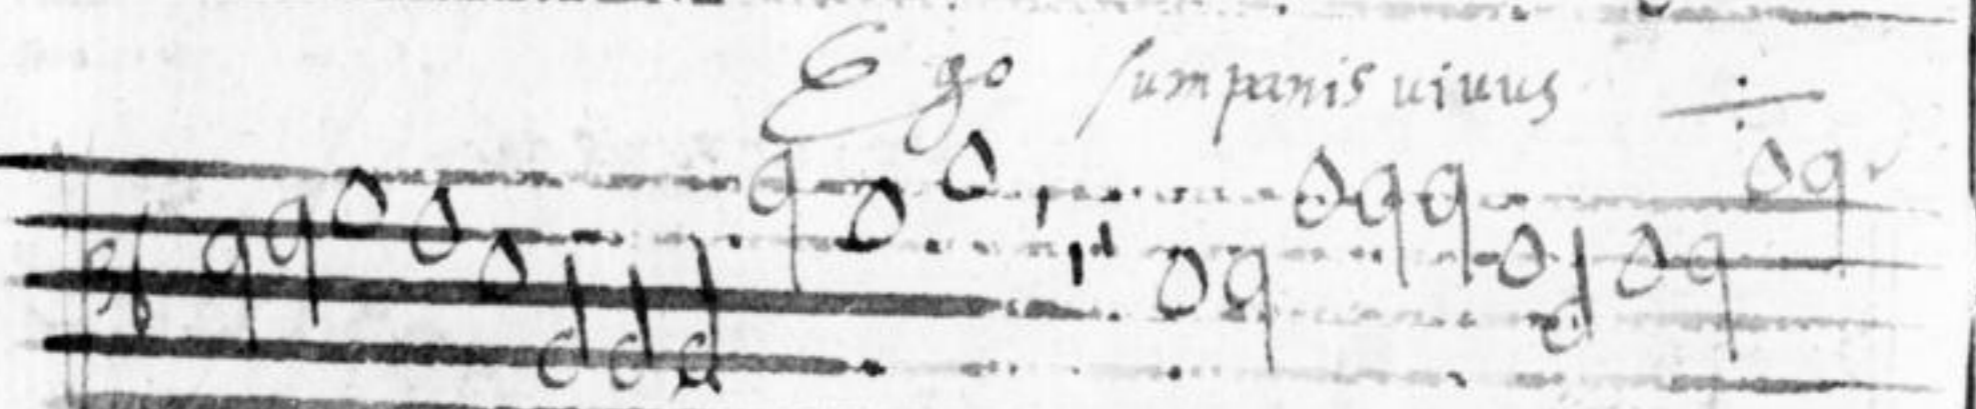 Ego sum panis uiuus